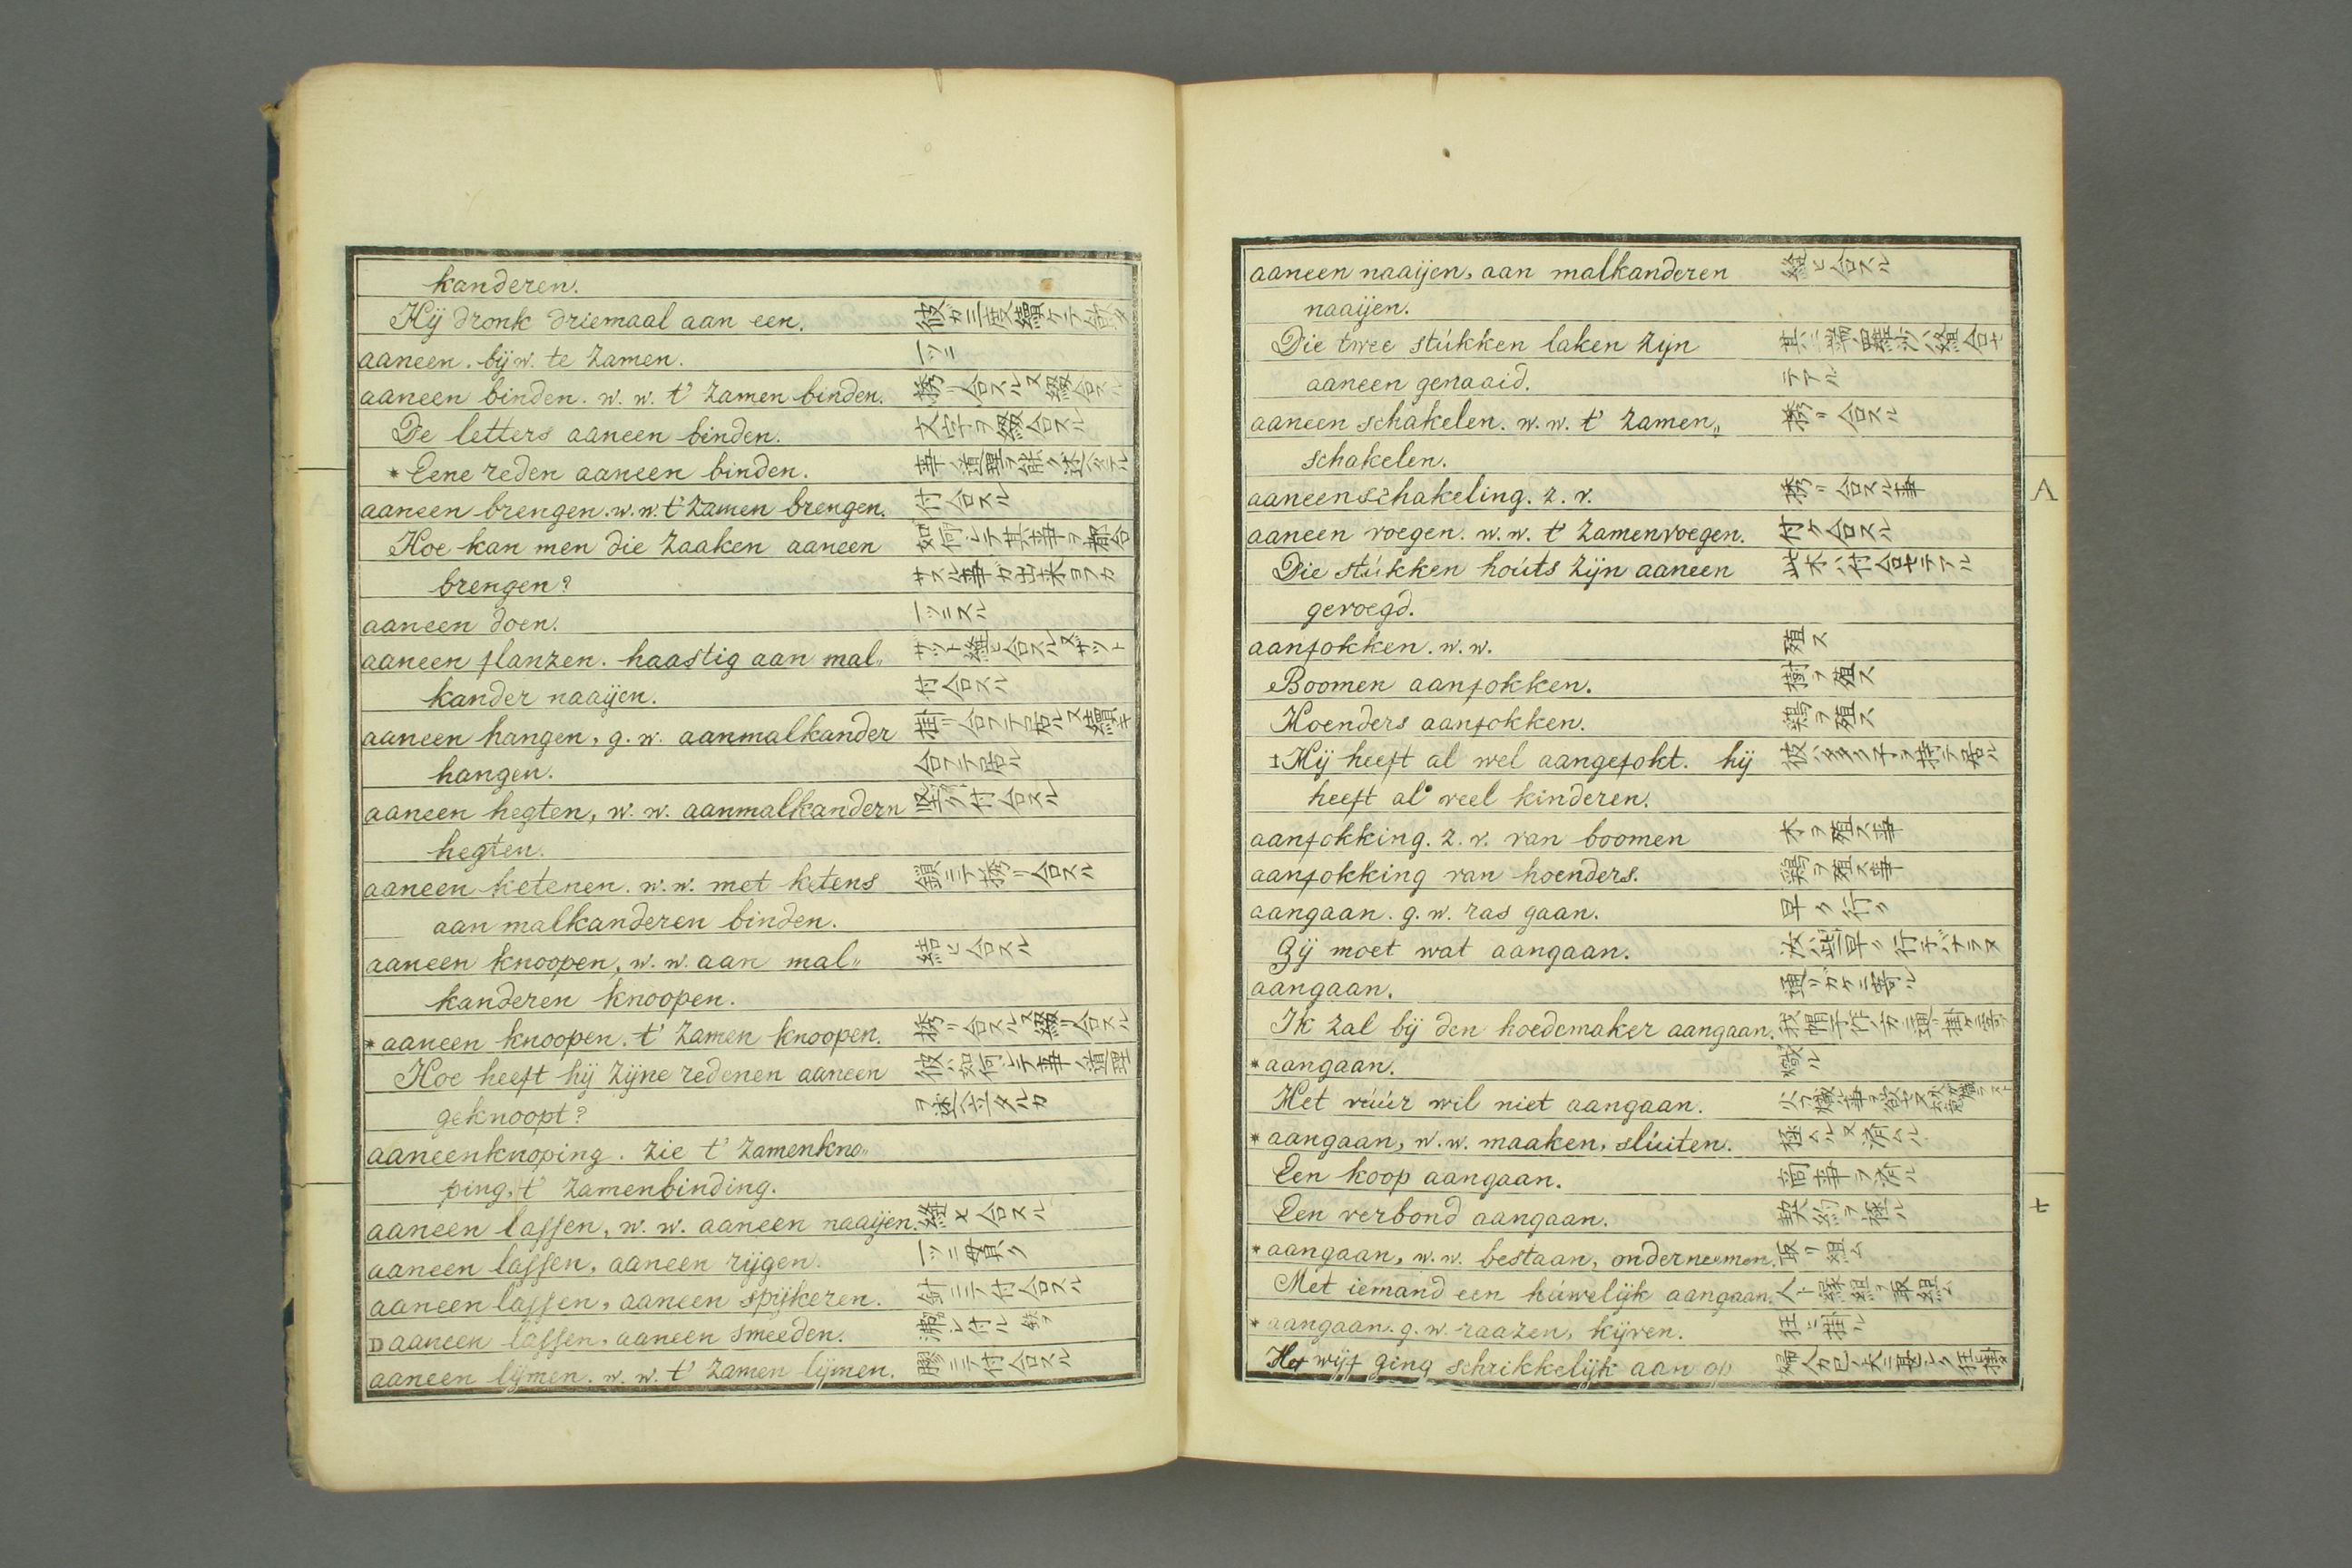 kanderen.
Hij dronk driemaal aan een. 彼ガ三度續ケテ飲タ
aaneen. bijw. te zamen. 一ツニ
aaneen binden. w. w. t' zamen binden. 合スル又綴合スル
De letters aaneen binden. 文字ヲ綴合スル
* Eene reden aaneen binden. 事ノ道理ヲ能ク述
aaneen brengen. w. w. t' zamen brengen. 付合スル
Hoe kan men die zaaken aaneen 如何シテ其事ヲ都合
brengen? サスル事ガ出来ヨフカ
aaneen doen. 一ツニスル
aaneen flanzen. haastig aan mal„ ザット縫ヒ合スル又ザット
kander naaijen. 付合スル
aaneen hangen, g. w. aanmalkander 掛リ合フテ居ル又續キ
hangen. 合フテ居ル
aaneen hegten, w. w. aanmalkandern 堅ク付合スル
hegten.
aaneen ketenen. w. w. met ketens 鎖ニテ 合スル
aan malkanderen binden.
aaneen knoopen, w. w. aan mal„ 結ヒ合スル
kanderen knoopen.
* aaneen knoopen. t' zamen knoopen. 合スル又綴リ合スル
Hoe heeft hij zijne redenen aaneen 彼ハ如何シテ事ノ道理
geknoopt? ヲ述 タルカ
aaneenknoping. zie t' zamenkno„
ping, t' zamenbinding.
aaneen lassen, w. w. aaneen naaijen. 縫ヒ合スル
aaneen lassen, aaneen rijgen. 一ツニ貫ク
aaneen lassen, aaneen spijkeren. 針ニテ付合スル
D aaneen lassen, aaneen smeeden. 沸シ付ル
aaneen lijmen. w. w. t' zamen lijmen. 膠ニテ付合スル
aaneen naaijen, aan malkanderen 縫ヒ合スル
naaijen.
Die twee stúkken laken zijn 其二端羅紗ハ縫合セ
aaneen genaaid. テアル
aaneen schakelen. w. w. t' zamen„ 合スル
schakelen.
aaneenschakeling. z. v. 合スル事
aaneen voegen. w. w. t' zamenvoegen. 付ケ合スル
Die stúkken hoúts zijn aaneen 此木ハ付合セテアル
gevoegd.
A
aanfokken. w. w. 殖ス
Boomen aanfokken. 樹ヲ殖ス
Hoenders aanfokken. 鶏ヲ殖ス
‡ Hij heeft al wel aangefokt. hij 彼ハ多ク子ヲ持テ居ル
heeft al veel kinderen.
aanfokking. z. v. van boomen 木ヲ殖ス事
aanfokking van hoenders. 鶏ヲ殖ス事
aangaan. g. w. ras gaan. 早ク行ク
Gij moet wat aangaan. 汝ハ些早ク行子バナラヌ
aangaan. 通リガケニ寄ル
Ik zal bij den hoedemaker aangaan. 我帽子作ノ方ニ通掛ケニ寄フ
* aangaan. 熾ル
Het vúúr wil niet aangaan.
* aangaan, w. w. maaken, slúiten. 極ムル又済ムル
Een koop aangaan. 商事ヲ済ル
Een verbond aangaan. 契約ヲ極ル
* aangaan, w. w. bestaan, onderneemen. 取リ組ム
Met iemand een húwelijk aangaan. 人ト縁組ヲ取組ム
* aangaan. g. w. raazen, kijven. 狂ヒ掛ル
Het wijf ging schrikkelijk aan op
七